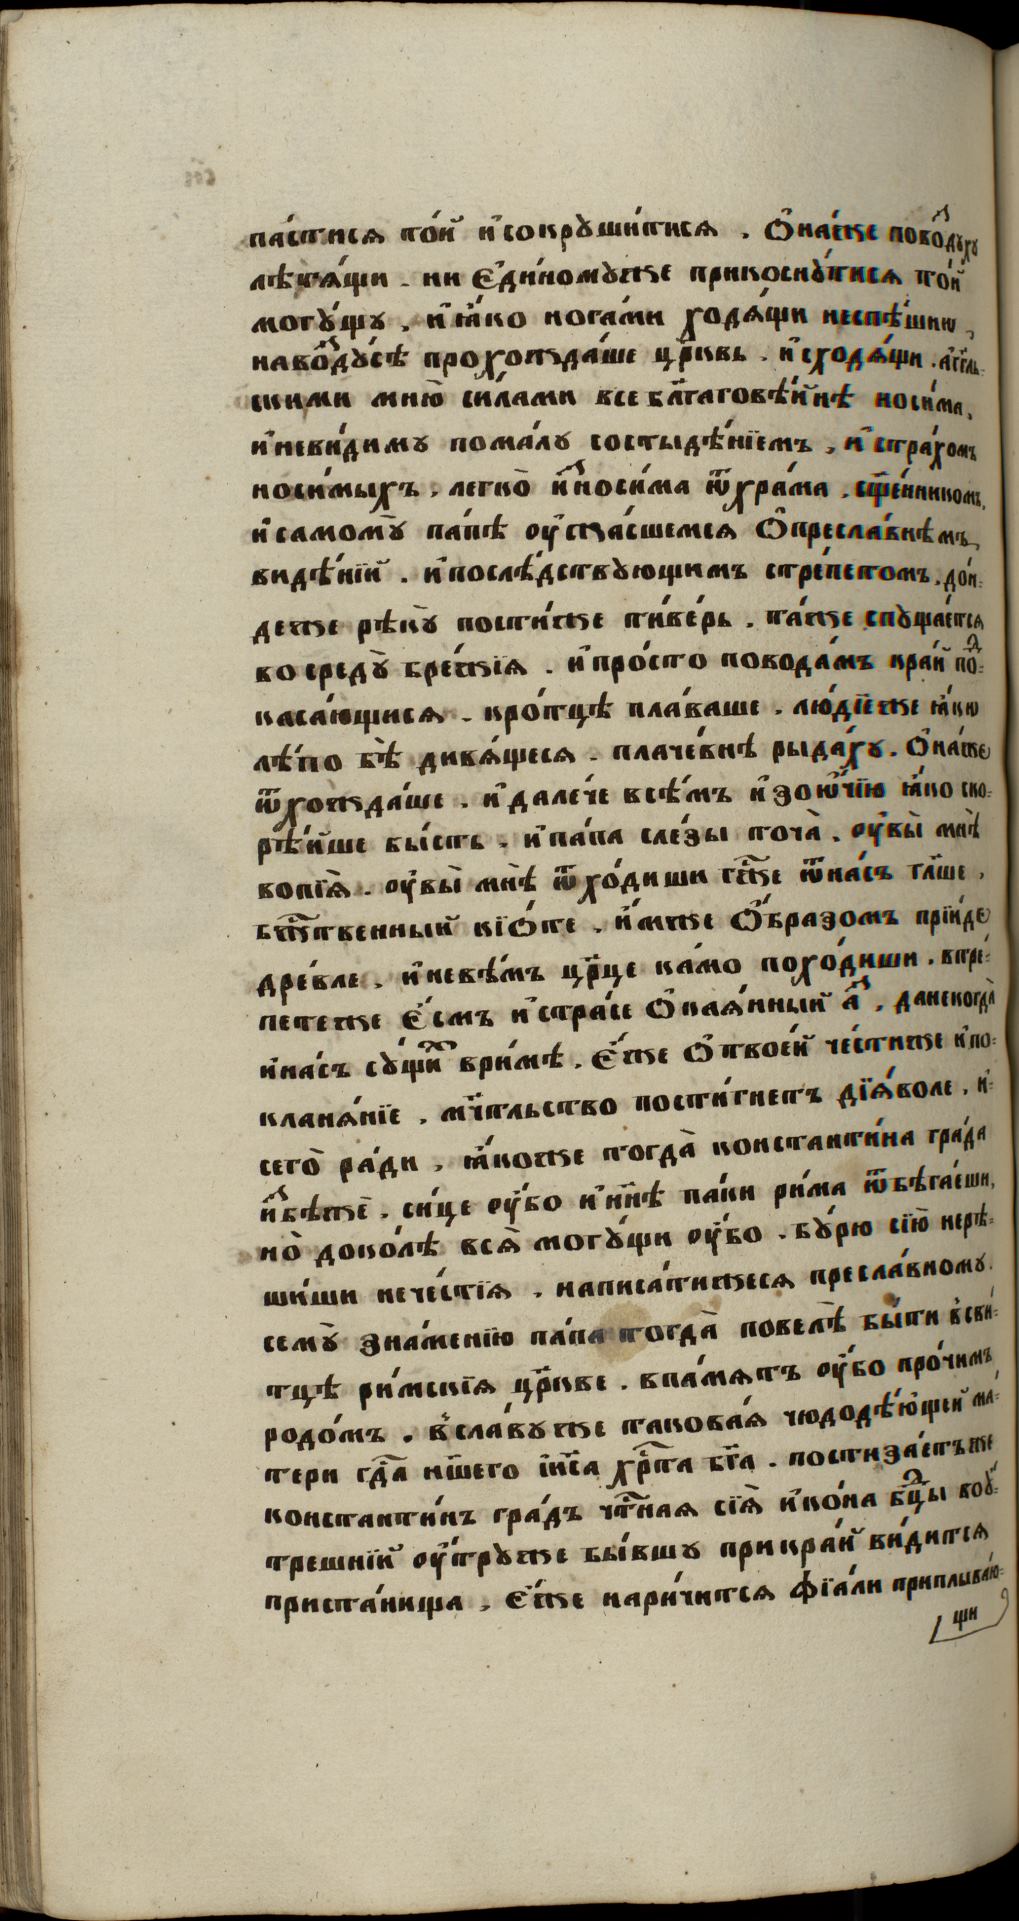 па́стися то́й и҆сокрꙋши́тися . Ѻ҆на́же повоⷥдꙋхꙋ
лѣтѧ́щи . ни Є҆ди́номꙋже прикоснꙋ́тися то́й
могꙋ́щꙋ , и҆ ꙗ҆́ко нога́ми ходѧ́щи неспѣ́шню ,
навоⷥ́дꙋсѣ прохожда́ше цр҃ковь . и҆сходѧ́щи . а҆́гг҃ль-
скими мню̀ си́лами все бл҃гаговѣ́йнѣ носи́ма ,
и҆неви́димꙋ пома́лꙋ состыдѣ́нїемъ , и҆ стра́хомъ
носи́мыхъ , легко̀ и҆ⷥноси́ма ѿхра́ма . сщ҃е́нникомъ ,
и҆самомꙋ̀ па́пѣ оу҆жа́сшемся Ѻ҆пресла́внѣмъ
видѣ́нїй . и҆послѣ́дствꙋющимъ стре́петомъ . до́и-
деже рѣкꙋ̀ пости́же ти́верь . та́же спꙋща́ется
во средꙋ̀ бре́жїя . и҆про́сто повода́мъ кра́й поⷣ-
каса́ющися . кро́тцѣ пла́ваше . лю́дїеже ꙗ҆́кѡ
лѣ́по бѣ̀ дивѧ́щеся . плаче́внѣ рыда́хꙋ . Ѻ҆на́же
ѿхожда́ше . и҆ дале́че всѣ́мъ и҆зоѡ҆́чїю ꙗ҆́ко ско-
рѣ́йше бы́сть . и҆ па́па сле́зы точа̀ . оу҆вы̀ мнѣ̀
вопїѧ̀ . оу҆вы̀ мнѣ̀ ѿхо́диши гж҃е ѿна́съ гл҃ше ,
бж҃твенный кїѻ́те . и҆́мже Ѻ҆́бразомъ прїи́де
дре́вле . и҆невѣ́мъ цр҃це ка́мо похо́диши . втре́-
петеже Є҆́смъ и҆стра́се Ѻ҆каѧ́нный а҆ⷥ , данекогда̀
и҆на́съ сꙋ́щиⷯ ври́мѣ . Є҆́же Ѻ҆ твое́й че́стиже и҆по-
кланѧ́нїе , мч҃и́тльство пости́гнетъ дїѧ́воле . и҆-
сего̀ ра́ди , ꙗ҆́коже тогда̀ константи́на гра́да
и҆ⷥбѣжѐ . си́це оу҆́бо и҆ нн҃ѣ па́ки ри́ма ѿбѣга́еши ,
но̀ доко́лѣ всѧ̀ могꙋ́щи оу҆́бо . бꙋ́рю сїю̀ нерѣ-
ши́ши нече́стїя . написа́тижеся пресла́вномꙋ .
семꙋ̀ зна́менїю па́па тогда̀ повелѣ̀ бы́ти всви́-
тцѣ ри́мскїя цр҃кве . впа́мять оу҆́бо про́чимъ
родо́мъ . всла́вꙋже такова́я чюдодѣ́ющей ма́-
тери гд҃а нш҃его і҆и҃са хр҃та бг҃а . постиза́етъже
константи́нъ гра́дъ чт҃ная сїѧ̀ и҆ко́на бц҃ы воꙋ́-
трешнїй оу҆́трꙋже бы́вшꙋ прикра́й ви́дится
приста́нища , Є҆́же нари́чится фїа́ли приплыва́ю-
щи